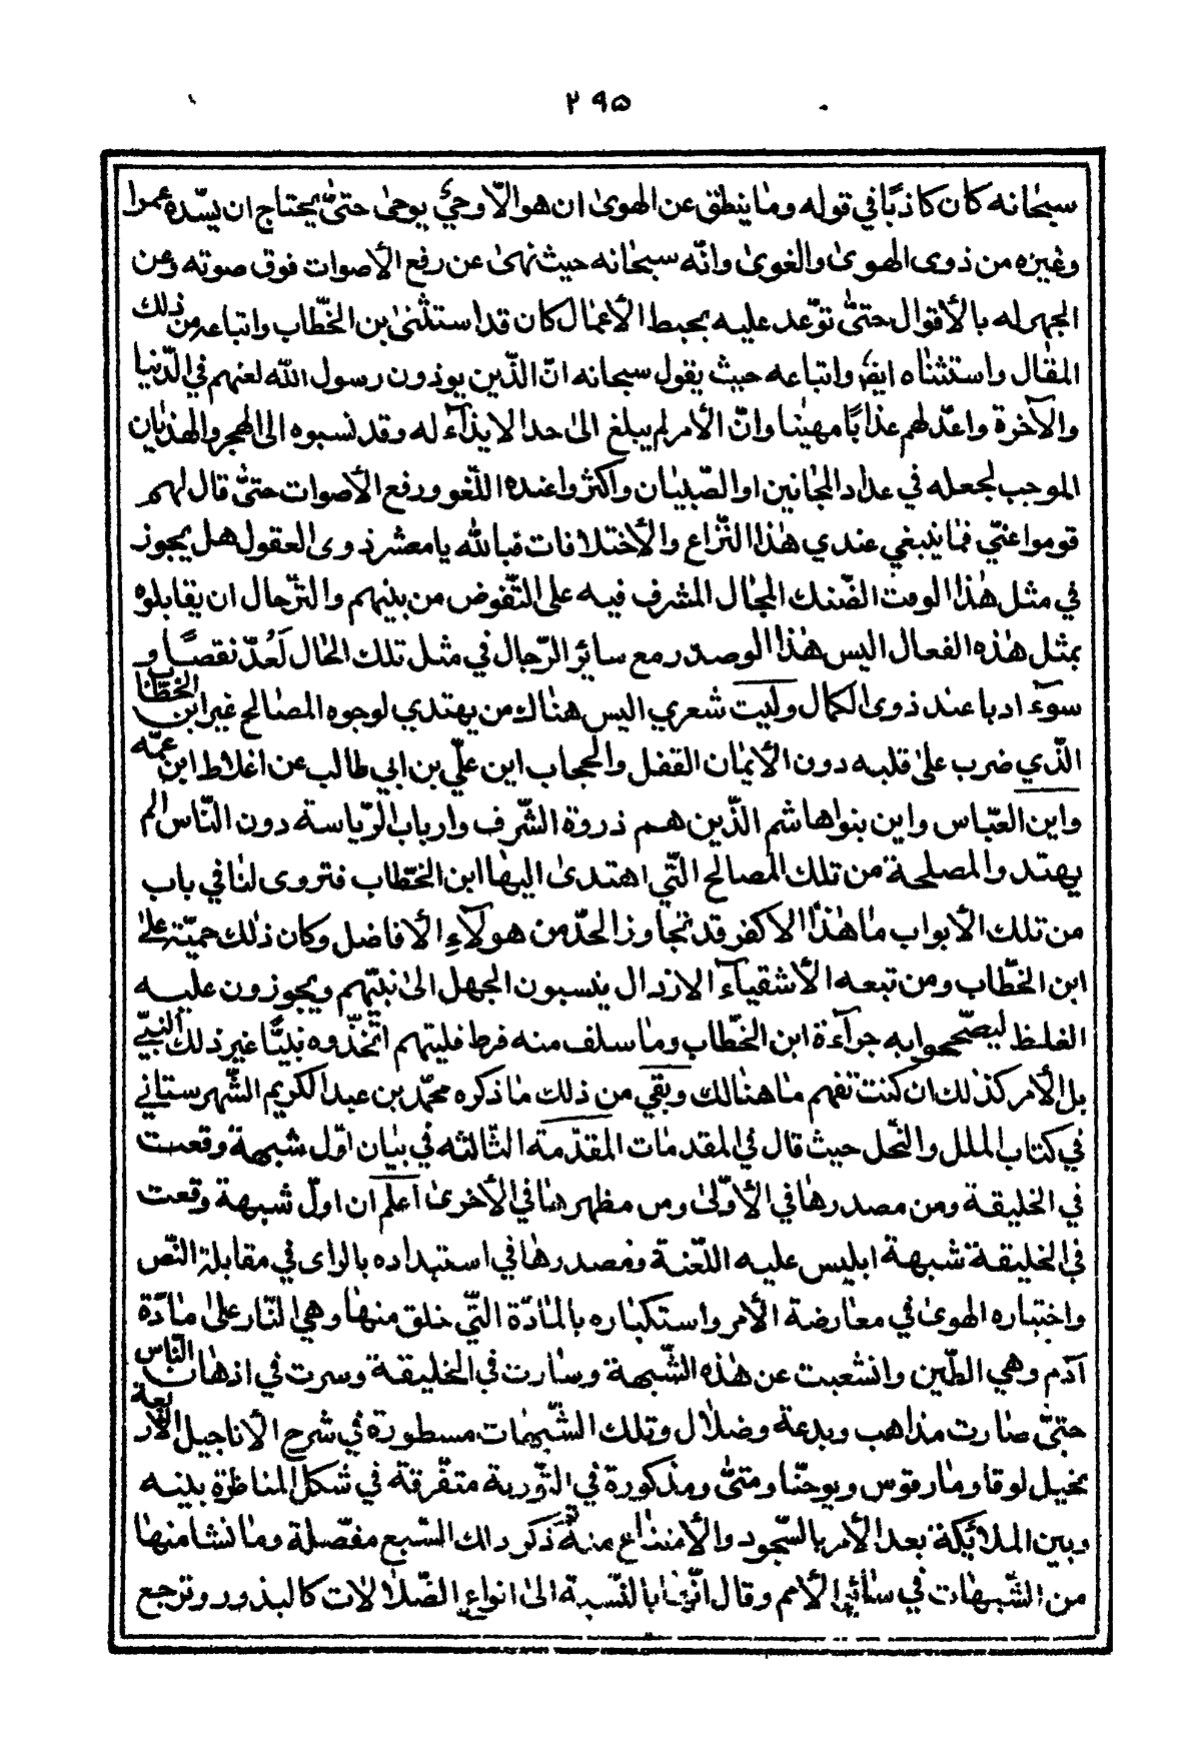 ۲۹۵
سبحانه كان كاذبًا في قوله وما ينطق عن الهوىٰ ان هو الّا وحيٌ يوحىٰ حتىّٰ يحتاج ان يسدّده عمرا
وغيره من ذوى الهوىٰ والغوىٰ وانّه سبحانه حيث نهىٰ عن رفع الأصوات فوق صوته وعن
الجهر له بالأقوال حتىّٰ توّعد عليه بحبط الأعمال كان قد استثنىٰ بن الخطّاب واتباعه من ذلك
المقال واستثناه ايضا واتباعه حيث يقول سبحانه انّ الذّين يوذون رسول الله لعنهم في الدّنيا
والآخرة واعدّ لهم عذابًا مهينا وانّ الأمر لم يبلغ الىٰ حد الايذآء له وقد نسبوه الى الهجر والهذيان
الموجب لجعله في عداد المجانين او الصّبيان واكثروا عنده اللّغو ورفع الأصوات حتىّٰ قال لهم
قوموا عنّي فما ينبغي عندي هٰذا النّزاع والأختلافات فبالله يا معشر ذوى العقول هل يجوز
في مثل هٰذا الوقت الضّنك المجال المشرف فيه على التّفوض من بينهم والتّرحال ان يقابلوه
بمثل هٰذه الفعال اليس هٰذا لو صدر مع سائر الرّجال في مثل تلك الحال لَعُدّ نقصًا و
سوٓء ادبا عند ذوى الكمال وليت شعري اليس هناك من يهتدي لوجوه المصالح غير ابن الخطّاب
الذّي ضرب علىٰ قلبه دون الأيمان القفل والحجاب اين علّي بن ابي طالب عن اغلاط ابن عمّه
واين العبّاس واين بنوا هاشم الذّين هم ذروة الشّرف وارباب الرّياسة دون النّاس الم
يهتد والمصلحة من تلك المصالح الّتي اهتدىٰ اليها ابن الخطّاب فتروى لنا في باب
من تلك الأبواب ما هٰذا الا كفر قد تجاوز الحدّ من هولآءِ الأفاضل وكان ذلك حميّة علىٰ
ابن الخطّاب ومن تبعه الأشقيآء الارذال ينسبون الجهل الىٰ نبيّهم ويجوزون عليه
الغلظ ليصّححوا به جرآءة ابن الخطّاب وما سلف منه فرط فليتهم اتّخذوه نبيًّا غير ذلك النّبيّ
بل الأمر كذلك ان كنت تفهم ما هنالك وبقي من ذلك ما ذكره محمّد بن عبد الكريم الشّهرستاني
في كتاب الملل والنّحل حيث قال في المقدمات المقدّمة الثّالثه في بيان اوّل شبهة وقعت
في الخليقة ومن مصدرها في الأوّلىٰ ومن مظهرها في الأخرىٰ اعلم ان اوّل شبهة وقعت
في الخليقة شبهة ابليس عليه اللّعنة ومصدرها في استبداده بالراى في مقابلة النّص
واختياره الهوىٰ في معارضة الأمر واستكباره بالمادّة التّي خلق منها وهي النّار علىٰ مادّة
آدم وهي الطّين وانشعبت عن هٰذه الشّبهة وسارت في الخليقة وسرت في اذهان النّاس
حتّىٰ صارت مذاهب وبدعة وضلال وتلك الشّبهات مسطورة في شرح الأناجيل الأربعة
نجيل لوقا ومارقوس ويوحنّا ومتىّٰ ومذكورة في التّورية متفّرقة في شكل المناظرة بينه
وبين الملائكة بعد الأمر بالسّجود والأمتناع منه ثمّ ذكر تلك السّبع مفصّلة وما نشا منها
من الشّبهات في سائر الأمم وقال انّها بالنّسبة الىٰ انواع الضّلالات كالبذور وترجع